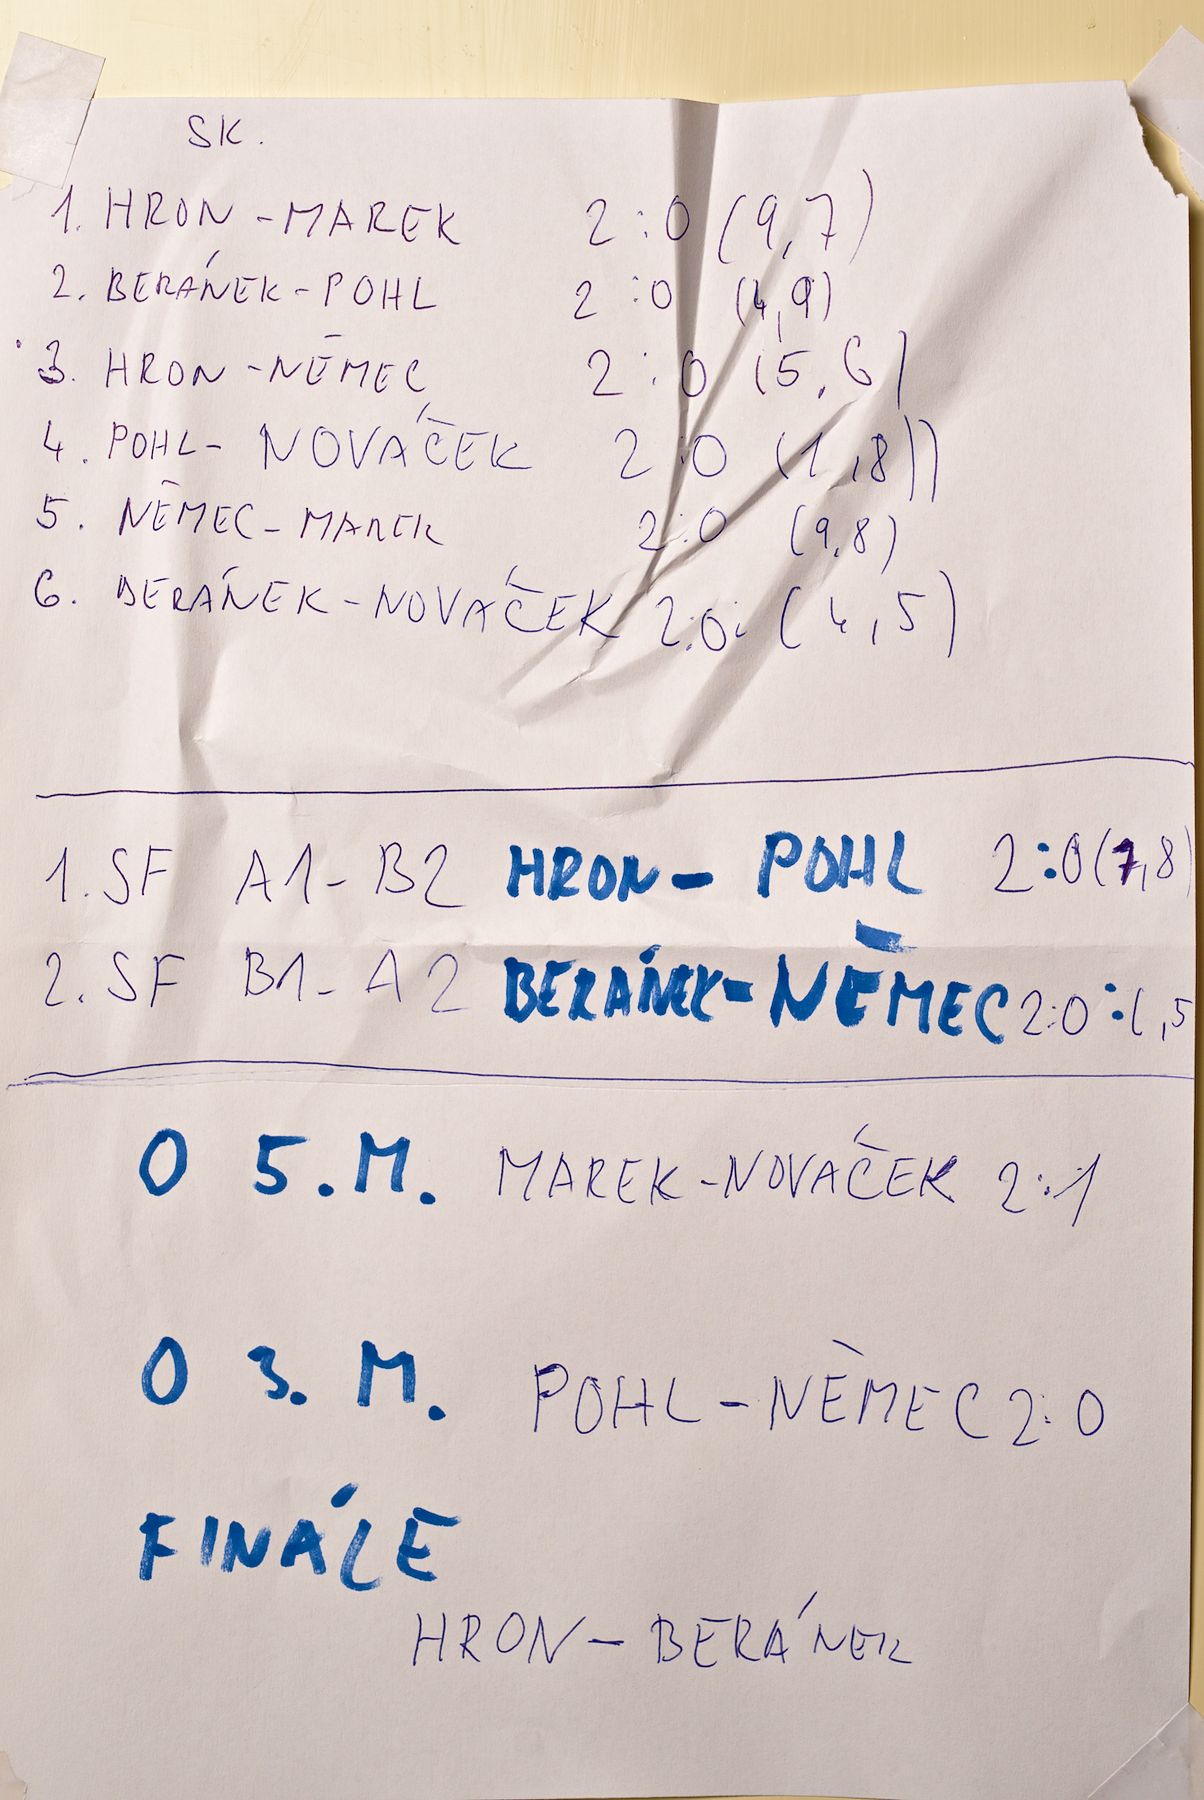 SK.
1. HRON - MAREK 2:0 (9,7)
2. BERÁNEK - POHL 2:0 (4,9)
3. HRON - NĒMEC 2:0 (5,6)
4. POHL - NOVÁČEK 2:0 (1,8))
5. NĒMEC - MAREK 2:0 (9,8)
6. BERÁNEK - NOVÁČEK 2:0 (4,5)
1. SF A1 - B2 HRON - POHL 2:0 (7,8)
2. SF B1 - A2 BERÁNEK - NĒMEC 2:0 : ( ,5
O 5. M. MAREK - NOVÁČEK 2:1
O 3. M. POHL - NĚMEC 2:0
FINÁLE
HRON - BERÁNEK